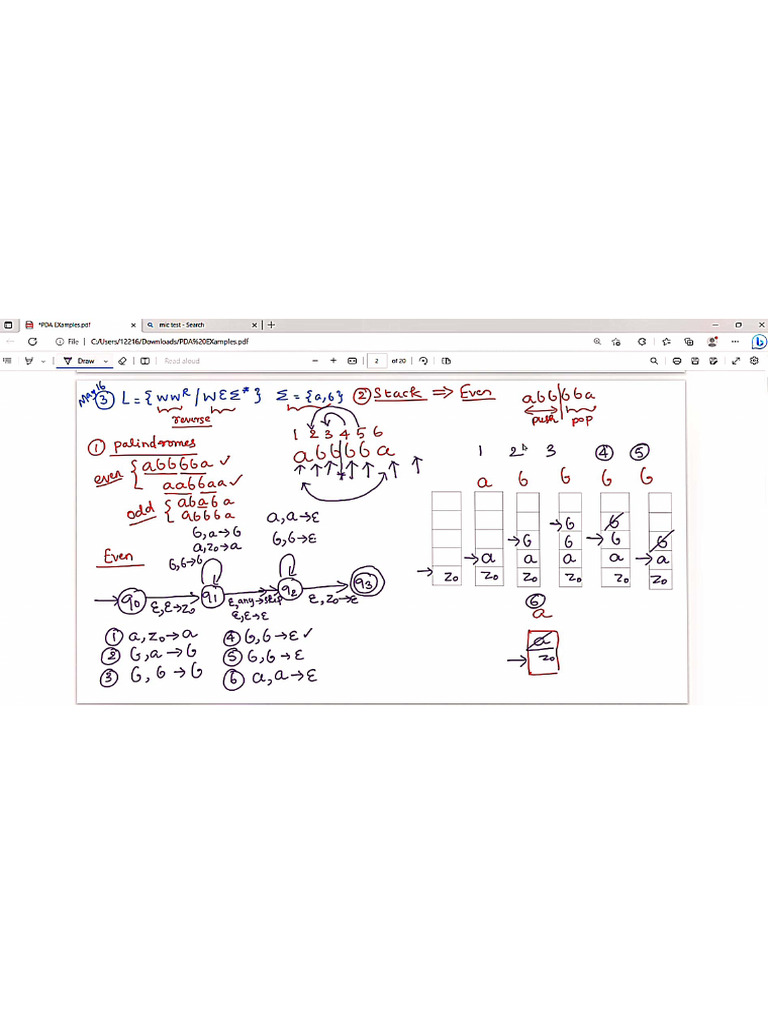 *PDA EXamples.pdf
mic test - Search
File | C:/Users/12216/Downloads/PDA%20EXamples.pdf
Draw
Read aloud
2 of 20
May 16
③ L = {wwᴿ / wεΣ*} Σ = {a,b} ② Stack ⇒ Even
reverse
abb|bba
push pop
① palindromes
even { abbbba ✓
aabbaa ✓
odd { ababa
abbba
1 2 3 4 5 6
abb|bba
1 2 3 ④ ⑤
a b b b b
b
b b b b
a a a a a
z₀ z₀ z₀ z₀ z₀ z₀
b,a→b
a,z₀→a
b,b→b
a,a→ε
b,b→ε
Even
q₀ q₁ q₂ q₃
ε,ε→z₀
ε,any→skip
ε,ε→ε
ε,z₀→ε
① a,z₀→a
② b,a→b
③ b,b→b
④ b,b→ε ✓
⑤ b,b→ε
⑥ a,a→ε
⑥
a
a
z₀